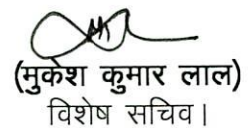 (मुकेश कुमार लाल)
विशेष सचिव।